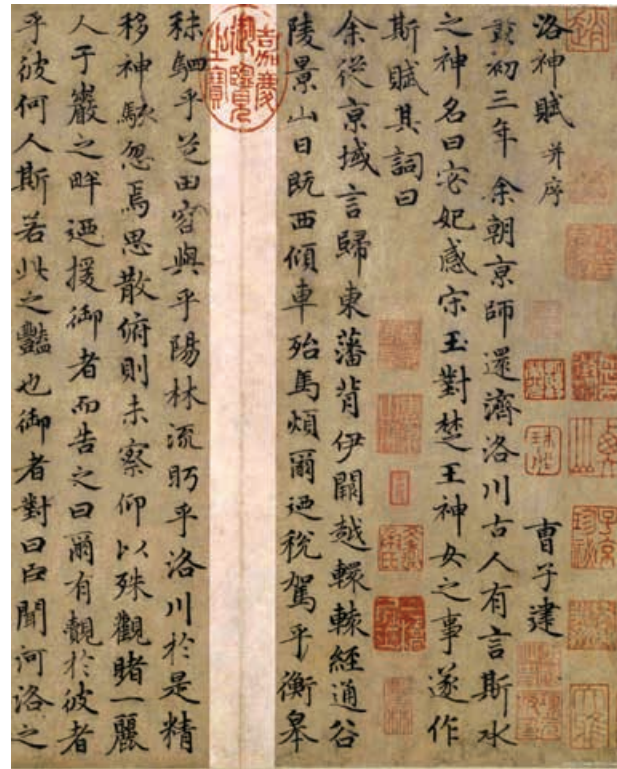 洛神賦 并序 曹子建
黃初三年余朝京師還濟洛川古人有言斯水
之神名曰宓妃感宋玉對楚王神女之事遂作
斯賦其詞曰
余從京域言歸東藩背伊闕越轘轅經通谷
陵景山日既西傾車殆馬煩爾迺稅駕乎衡皋
秣駟乎芝田容與乎陽林流眄乎洛川於是精
移神駭忽焉思散俯則未察仰以殊觀睹一麗
人于巖之畔迺援御者而告之曰爾有覿於彼者
乎彼何人斯若此之豔也御者對曰臣聞河洛之
嘉慶御覽之寶